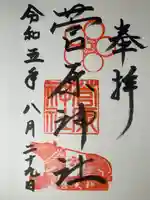 奉拝
菅原神社
令和五年八月二十九日